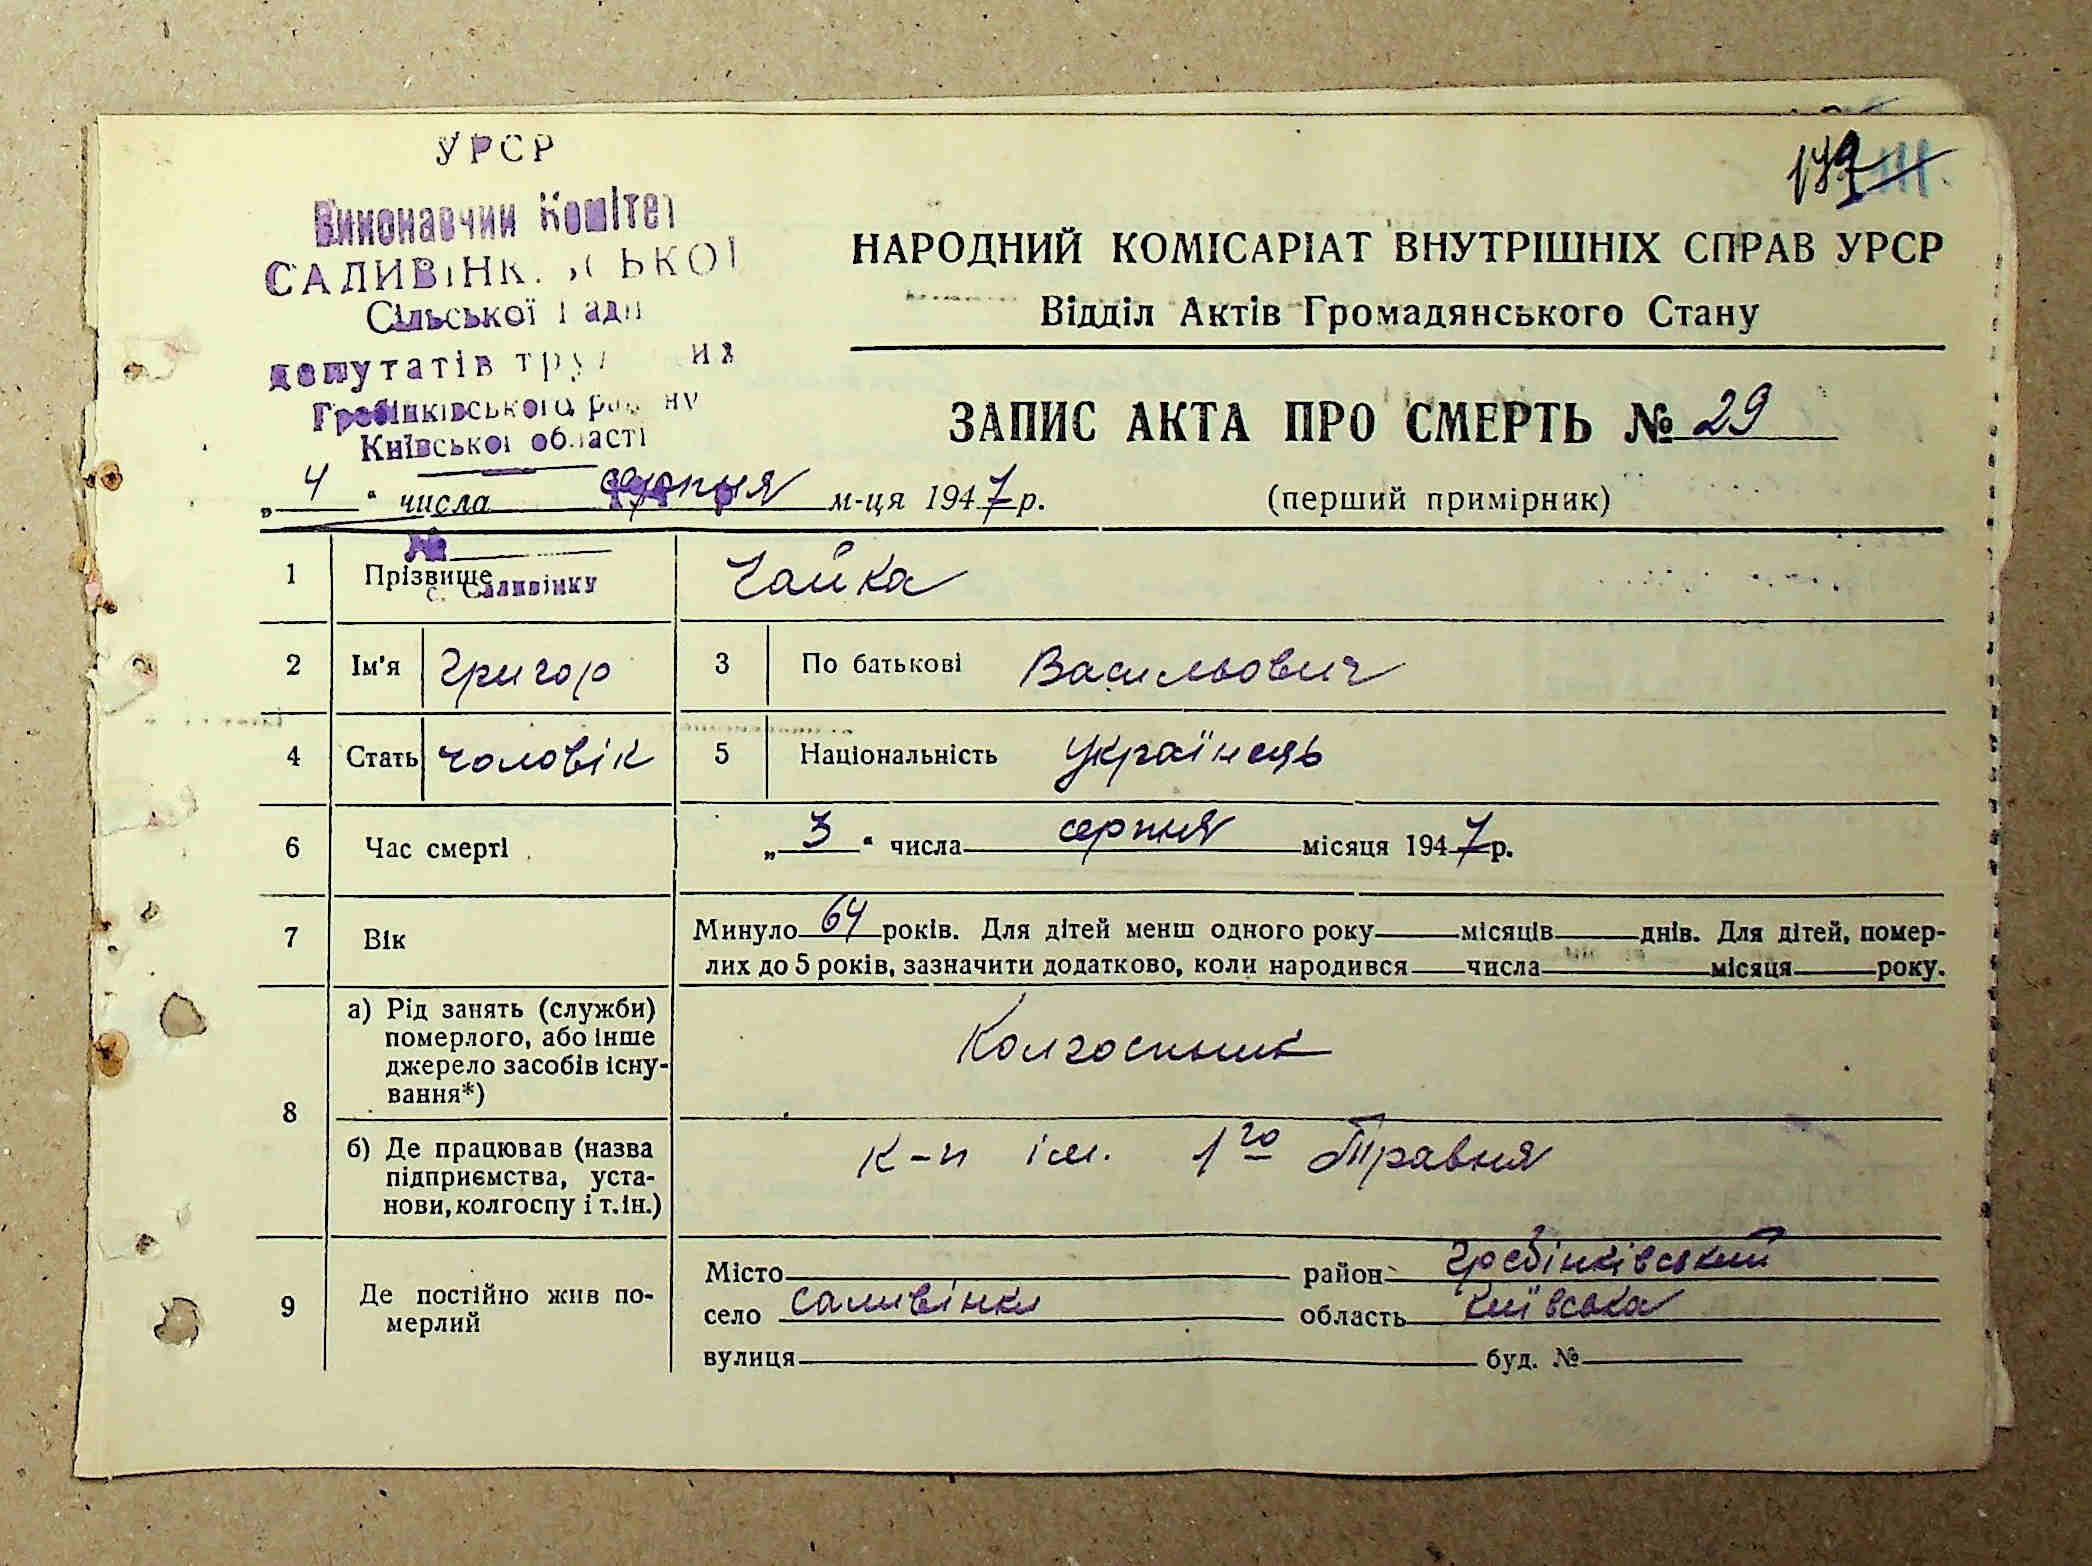 УРСР
Виконавчий Комітет
САЛИВІНК СЬКОЇ
Сільської Ради
депутатів труд их
Гребінківського району
Київської області
НАРОДНИЙ КОМІСАРІАТ ВНУТРІШНІХ СПРАВ УРСР
Відділ Актів Громадянського Стану
ЗАПИС АКТА ПРО СМЕРТЬ № 29
„ 4 “ числа серпня м-ця 1947 р.
(перший примірник)
№
с. Саливінки
1 Прізвище Чайка
2 Ім'я Григор 3 По батькові Васильович
4 Стать чоловік 5 Національність Українець
6 Час смерті „ 3 “ числа серпня місяця 1947 р.
7 Вік Минуло 64 років. Для дітей менш одного року місяців днів. Для дітей, помер-
лих до 5 років, зазначити додатково, коли народився числа місяця року.
8 а) Рід занять (служби)
померлого, або інше
джерело засобів існу-
вання*)
Колгоспник
б) Де працював (назва
підприємства, уста-
нови, колгоспу і т. ін.)
к-п ім. 1го Травня
9 Де постійно жив по-
мерлий
Місто район Гребінківський
село Саливінки область Київська
вулиця буд. №